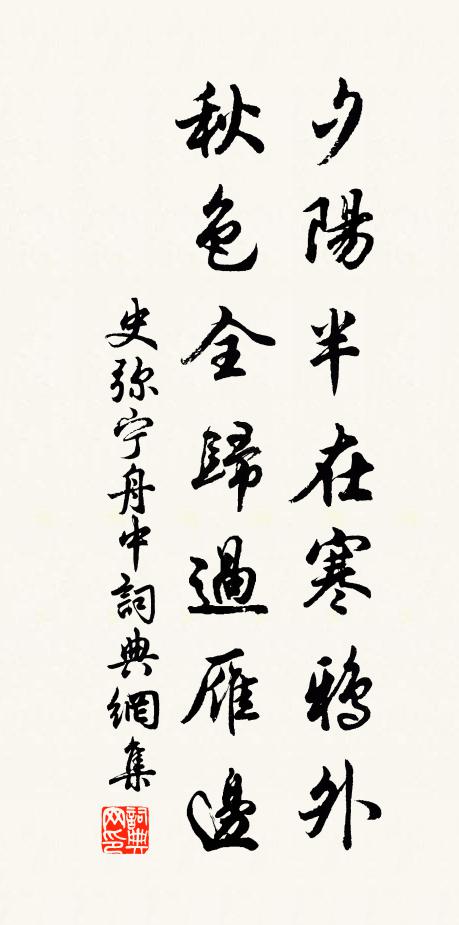 夕陽半在寒鴉外
秋色全歸過雁邊
史弥宁舟中詞典網集
詞典网印